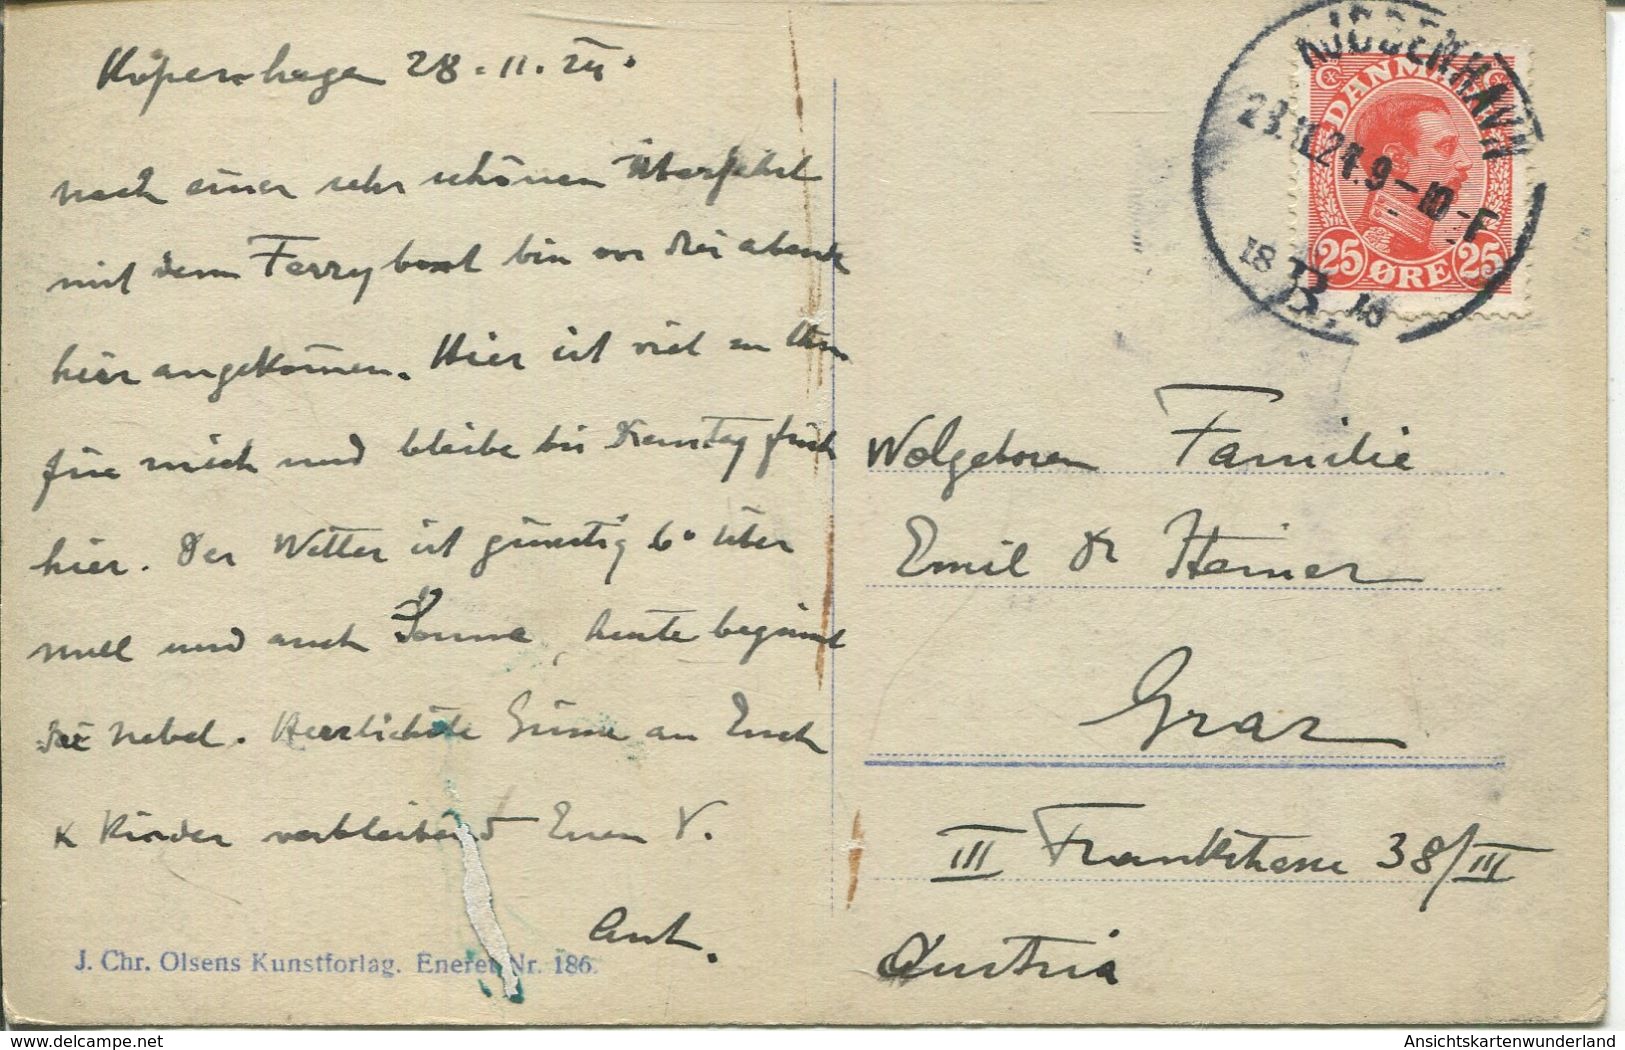 Kopenhagen 28.11.24.
nach einer sehr schönen Überfahrt
mit dem Ferryboat bin vor drei abends
hier angekommen. Hier ist viel zu tun
für mich und bleibe bis Dienstag früh
hier. Der Wetter ist günstig 6° über
null und auch Sonne, heute beginnt
der Nebel. Herzlichste Grüsse an Euch
K Kinder verbleibend Euer V.
Ant.
J. Chr. Olsens Kunstforlag. Eneret Nr. 186.
KJØBENHAVN
28.11.24.9-10 F
18 B. 18
DANMARK
25 ØRE 25
Wolgeboren Familie
Emil Dr Steiner
Graz
III Frankstrasse 38/III
Austria
delcampe.net
Ansichtskartenwunderland